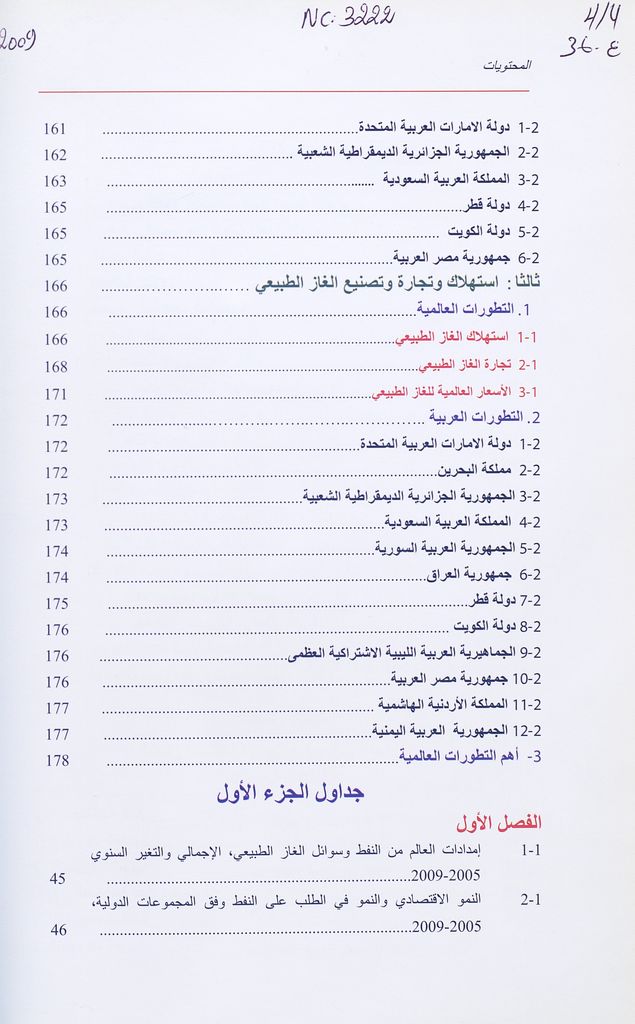 4/4
NC: 3222
36. ع
2009
المحتويات
2-1 دولة الامارات العربية المتحدة.......................................................... 161
2-2 الجمهورية الجزائرية الديمقراطية الشعبية ............................................ 162
2-3 المملكة العربية السعودية ............................................................... 163
2-4 دولة قطر................................................................................. 165
2-5 دولة الكويت ............................................................................. 165
2-6 جمهورية مصر العربية.................................................................. 165
ثالثا: استهلاك وتجارة وتصنيع الغاز الطبيعي .................... 166
1. التطورات العالمية....................................................................... 166
1-1 استهلاك الغاز الطبيعي................................................................. 166
1-2 تجارة الغاز الطبيعي.................................................................... 168
1-3 الأسعار العالمية للغاز الطبيعي........................................................ 171
2. التطورات العربية ....................................................................... 172
2-1 دولة الامارات العربية المتحدة.......................................................... 172
2-2 مملكة البحرين........................................................................... 172
2-3 الجمهورية الجزائرية الديمقراطية الشعبية............................................ 173
2-4 المملكة العربية السعودية............................................................... 173
2-5 الجمهورية العربية السورية............................................................. 174
2-6 جمهورية العراق......................................................................... 174
2-7 دولة قطر................................................................................. 175
2-8 دولة الكويت ............................................................................. 176
2-9 الجماهيرية العربية الليبية الاشتراكية العظمى....................................... 176
2-10 جمهورية مصر العربية................................................................ 176
2-11 المملكة الأردنية الهاشمية ............................................................ 177
2-12 الجمهورية العربية اليمنية............................................................ 177
3- أهم التطورات العالمية................................................................... 178
جداول الجزء الأول
الفصل الأول
1-1 إمدادات العالم من النفط وسوائل الغاز الطبيعي، الإجمالي والتغير السنوي
2005-2009.................................................................... 45
1-2 النمو الاقتصادي والنمو في الطلب على النفط وفق المجموعات الدولية،
2005-2009.................................................................... 46